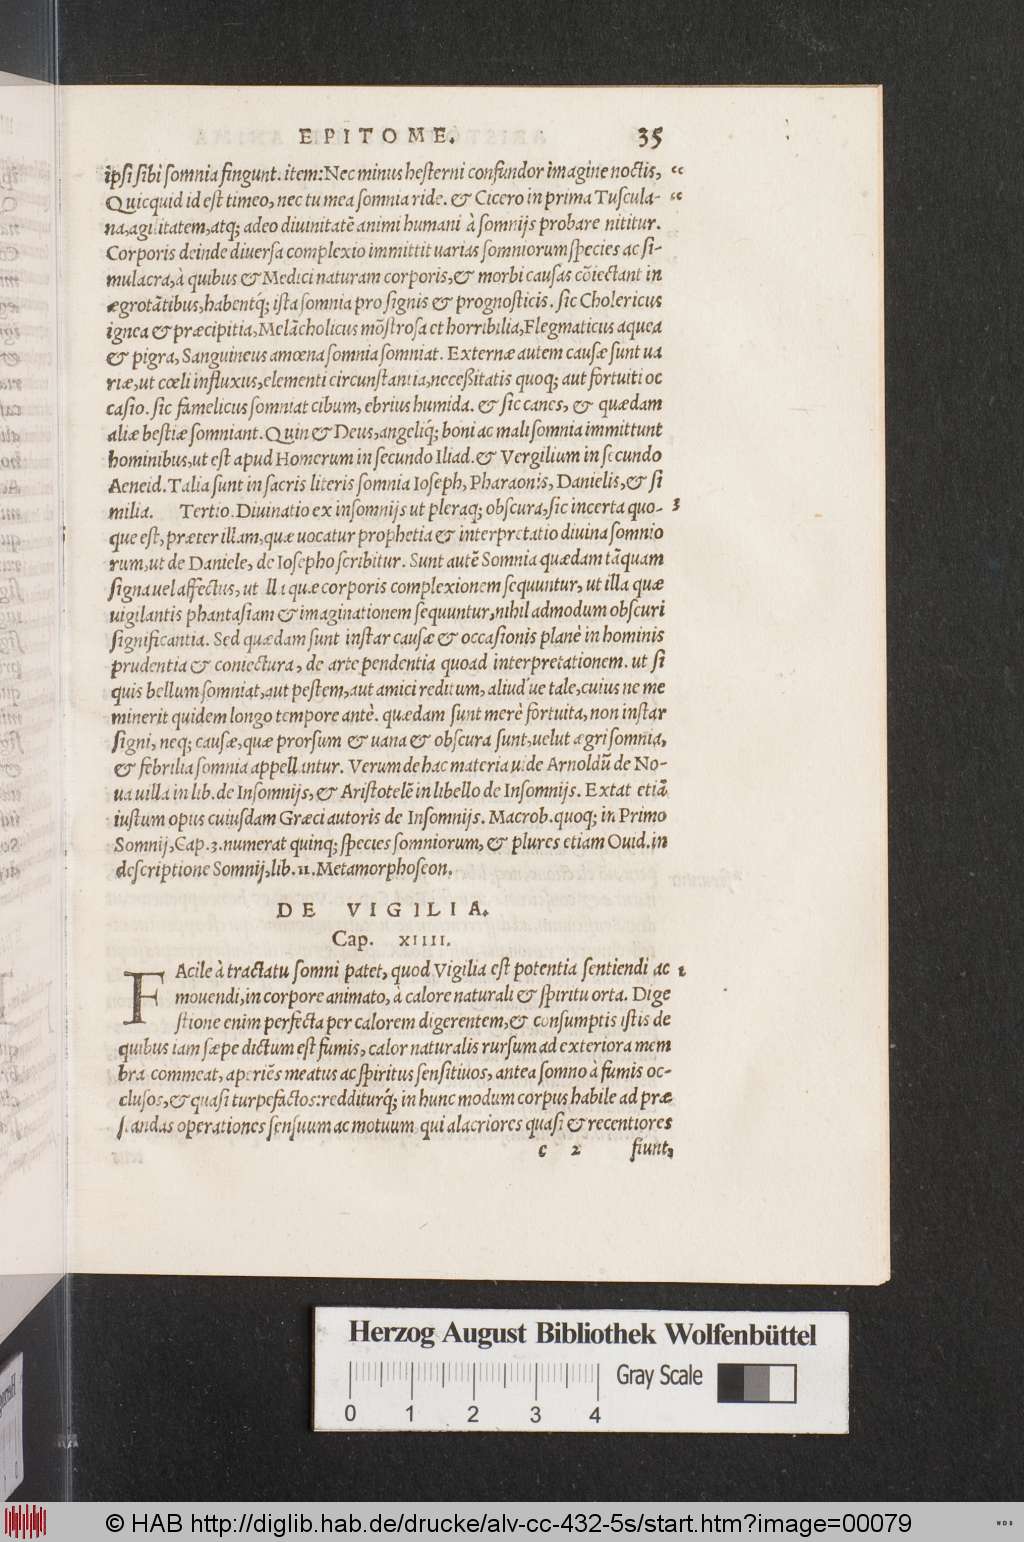 EPITOME. 35
ipsi sibi somnia fingunt. item: Nec minus hesterni confundor imagine noctis, “
Quicquid id est timeo, nec tu mea somnia ride. & Cicero in prima Tuscula- “
na, agilitatem, atq; adeo diuinitatē animi humani à somnijs probare nititur.
Corporis deinde diuersa complexio immittit uarias somniorum species ac si-
mulacra, à quibus & Medici naturam corporis, & morbi causas cōiectant in
ægrotātibus, habentq́; ista somnia pro signis & prognosticis. sic Cholericus
ignea & præcipitia, Melācholicus mōstrosa et horribilia, Flegmaticus aquea
& pigra, Sanguineus amœna somnia somniat. Externæ autem causæ sunt ua
riæ, ut cœli influxus, elementi circunstantia, neceßitatis quoq; aut fortuiti oc
casio. sic famelicus somniat cibum, ebrius humida. & sic canes, & quædam
aliæ bestiæ somniant. Quin & Deus, angeliq́; boni ac mali somnia immittunt
hominibus, ut est apud Homerum in secundo Iliad. & Vergilium in secundo
Aeneid. Talia sunt in sacris literis somnia Ioseph, Pharaonis, Danielis, & si
milia. Tertio. Diuinatio ex insomnijs ut pleraq; obscura, sic incerta quo- 3
que est, præter illam, quæ uocatur prophetia & interpretatio diuina somnio
rum, ut de Daniele, de Iosepho scribitur. Sunt autē Somnia quædam tāquam
signa uel affectus, ut illa quæ corporis complexionem sequuntur, ut illa quæ
uigilantis phantasiam & imaginationem sequuntur, nihil admodum obscuri
significantia. Sed quædam sunt instar causæ & occasionis planè in hominis
prudentia & coniectura, de arte pendentia quoad interpretationem. ut si
quis bellum somniat, aut pestem, aut amici reditum, aliud'ue tale, cuius ne me
minerit quidem longo tempore antè. quædam sunt merè fortuita, non instar
signi, neq; causæ, quæ prorsum & uana & obscura sunt, uelut ægri somnia,
& febrilia somnia appellantur. Verum de hac materia uide Arnoldū de No-
ua uilla in lib. de Insomnijs, & Aristotelē in libello de Insomnijs. Extat etiā
iustum opus cuiusdam Græci autoris de Insomnijs. Macrob. quoq; in Primo
Somnij, Cap. 3. numerat quinq; species somniorum, & plures etiam Ouid. in
descriptione Somnij, lib. 11. Metamorphoseon.
DE VIGILIA.
Cap. XIIII.
FAcile à tractatu somni patet, quod Vigilia est potentia sentiendi ac 1
mouendi, in corpore animato, à calore naturali & spiritu orta. Dige
stione enim perfecta per calorem digerentem, & consumptis istis de
quibus iam sæpe dictum est fumis, calor naturalis rursum ad exteriora mem
bra commeat, aperiēs meatus ac spiritus sensitiuos, antea somno à fumis oc-
clusos, & quasi turpefactos: redditurq́; in hunc modum corpus habile ad præ
standas operationes sensuum ac motuum qui alacriores quasi & recentiores
c 2 fiunt,
Herzog August Bibliothek Wolfenbüttel
Gray Scale
0 1 2 3 4
© HAB http://diglib.hab.de/drucke/alv-cc-432-5s/start.htm?image=00079